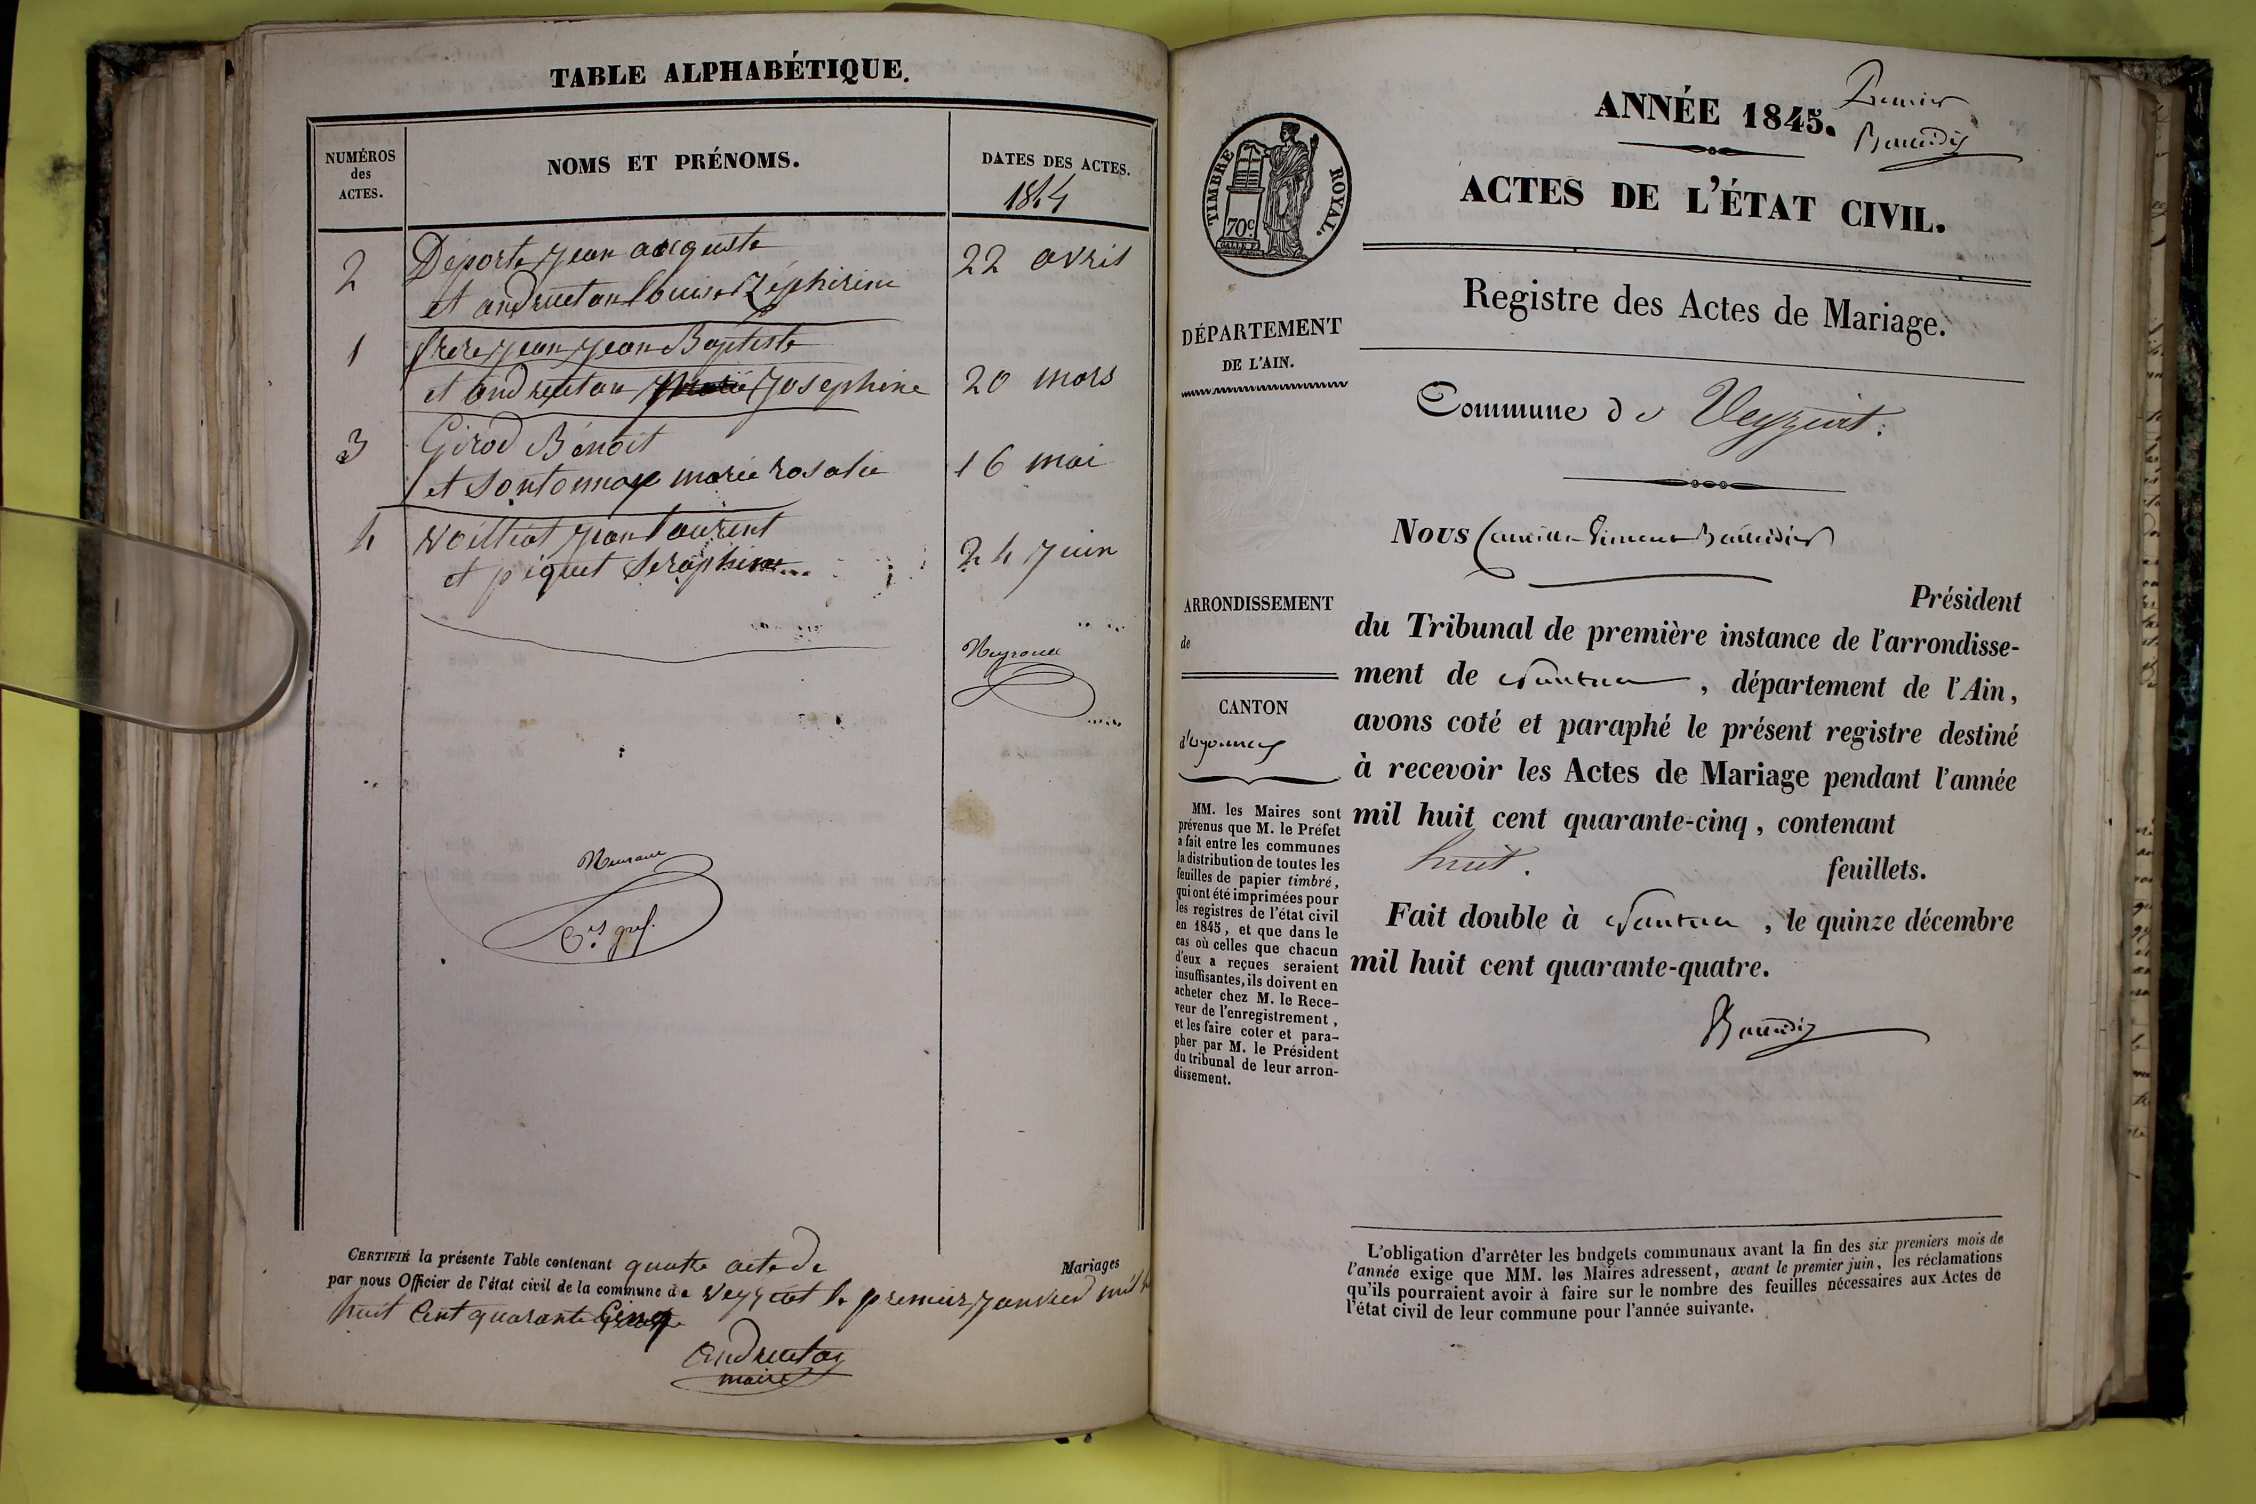 TABLE ALPHABÉTIQUE.
NUMÉROS
des
ACTES.
NOMS ET PRÉNOMS.
DATES DES ACTES.
1844
2
Déporte jean auguste
22 avril
et andruetan louise Zéphirine
1
frerejean jean Baptiste
et andruetan Josephine
20 mars
3
Girod Bénoit
et Sontonnax marie rosalie
16 mai
4
Voilliat jean laurent
et piquet Seraphine
24 juin
CERTIFIÉ la présente Table contenant quatre acte de Mariages
par nous Officier de l'état civil de la commune de Veyziat le premier janvier mil
huit Cent quarante Cinq
andruetan
maire
ANNÉE 1845.
Premier
Baudin
ACTES DE L'ÉTAT CIVIL.
TIMBRE ROYAL.
70c
Registre des Actes de Mariage.
DÉPARTEMENT
DE L'AIN.
Commune de Veyziat.
NOUS
Président
ARRONDISSEMENT
de
du Tribunal de première instance de l'arrondisse-
ment de Nantua, département de l'Ain,
CANTON
d'oyonnax
avons coté et paraphé le présent registre destiné
à recevoir les Actes de Mariage pendant l'année
mil huit cent quarante-cinq, contenant
huit. feuillets.
Fait double à Nantua, le quinze décembre
mil huit cent quarante-quatre.
MM. les Maires sont
prévenus que M. le Préfet
a fait entre les communes
la distribution de toutes les
feuilles de papier timbré,
qui ont été imprimées pour
les registres de l'état civil
en 1845, et que dans le
cas où celles que chacun
d'eux a reçues seraient
insuffisantes, ils doivent en
acheter chez M. le Rece-
veur de l'enregistrement,
et les faire coter et para-
pher par M. le Président
du tribunal de leur arron-
dissement.
L'obligation d'arrêter les budgets communaux avant la fin des six premiers mois de
l'année exige que MM. les Maires adressent, avant le premier juin, les réclamations
qu'ils pourraient avoir à faire sur le nombre des feuilles nécessaires aux Actes de
l'état civil de leur commune pour l'année suivante.